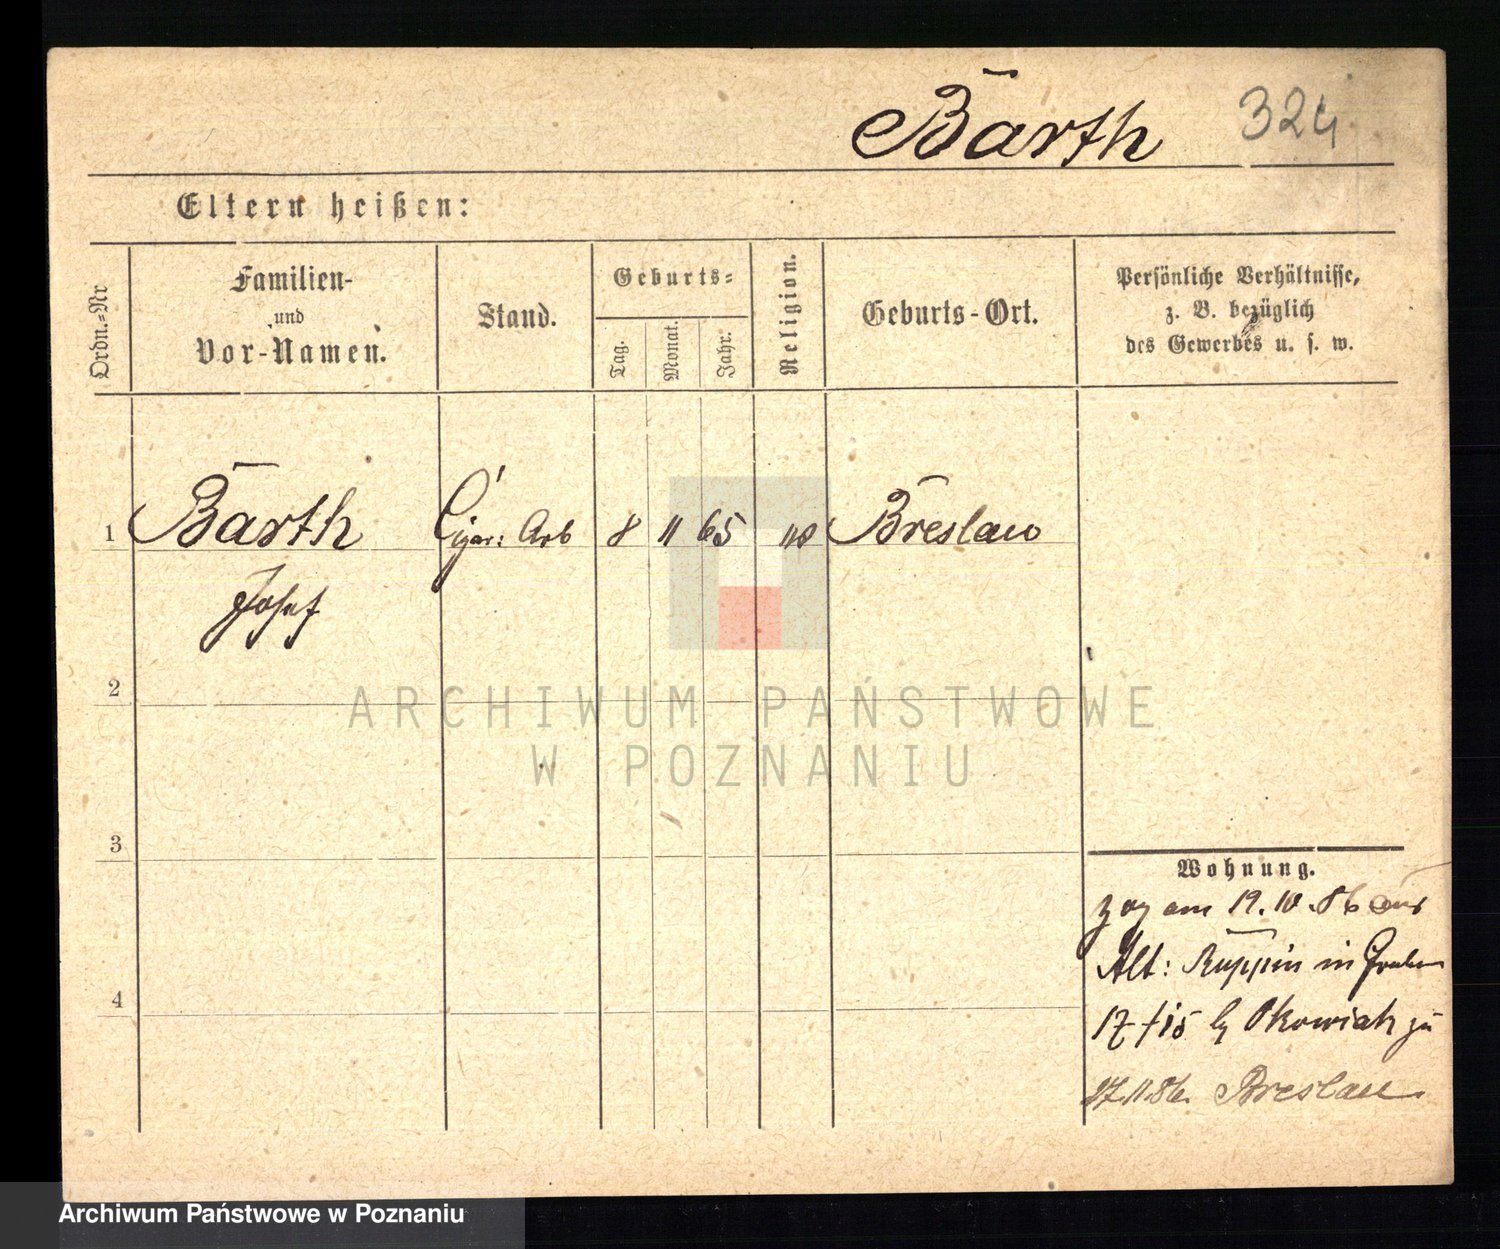 Barth 324
Eltern heißen:
Ordn.-Nr
Familien-
und
Vor-Namen.
Stand.
Geburts-
Tag.
Monat.
Jahr.
Religion.
Geburts-Ort.
Persönliche Verhältnisse,
z. B. bezüglich
des Gewerbes u. s. w.
1 Barth Cigar: Arb 8 11 65 Breslau
Josef
2
3
4
Wohnung.
zog am 19. 10. 86 aus
Alt: Ruppin in Graben
17/15 Okowiak zu
27.11.86. Breslau
ARCHIWUM PAŃSTWOWE
W POZNANIU
Archiwum Państwowe w Poznaniu